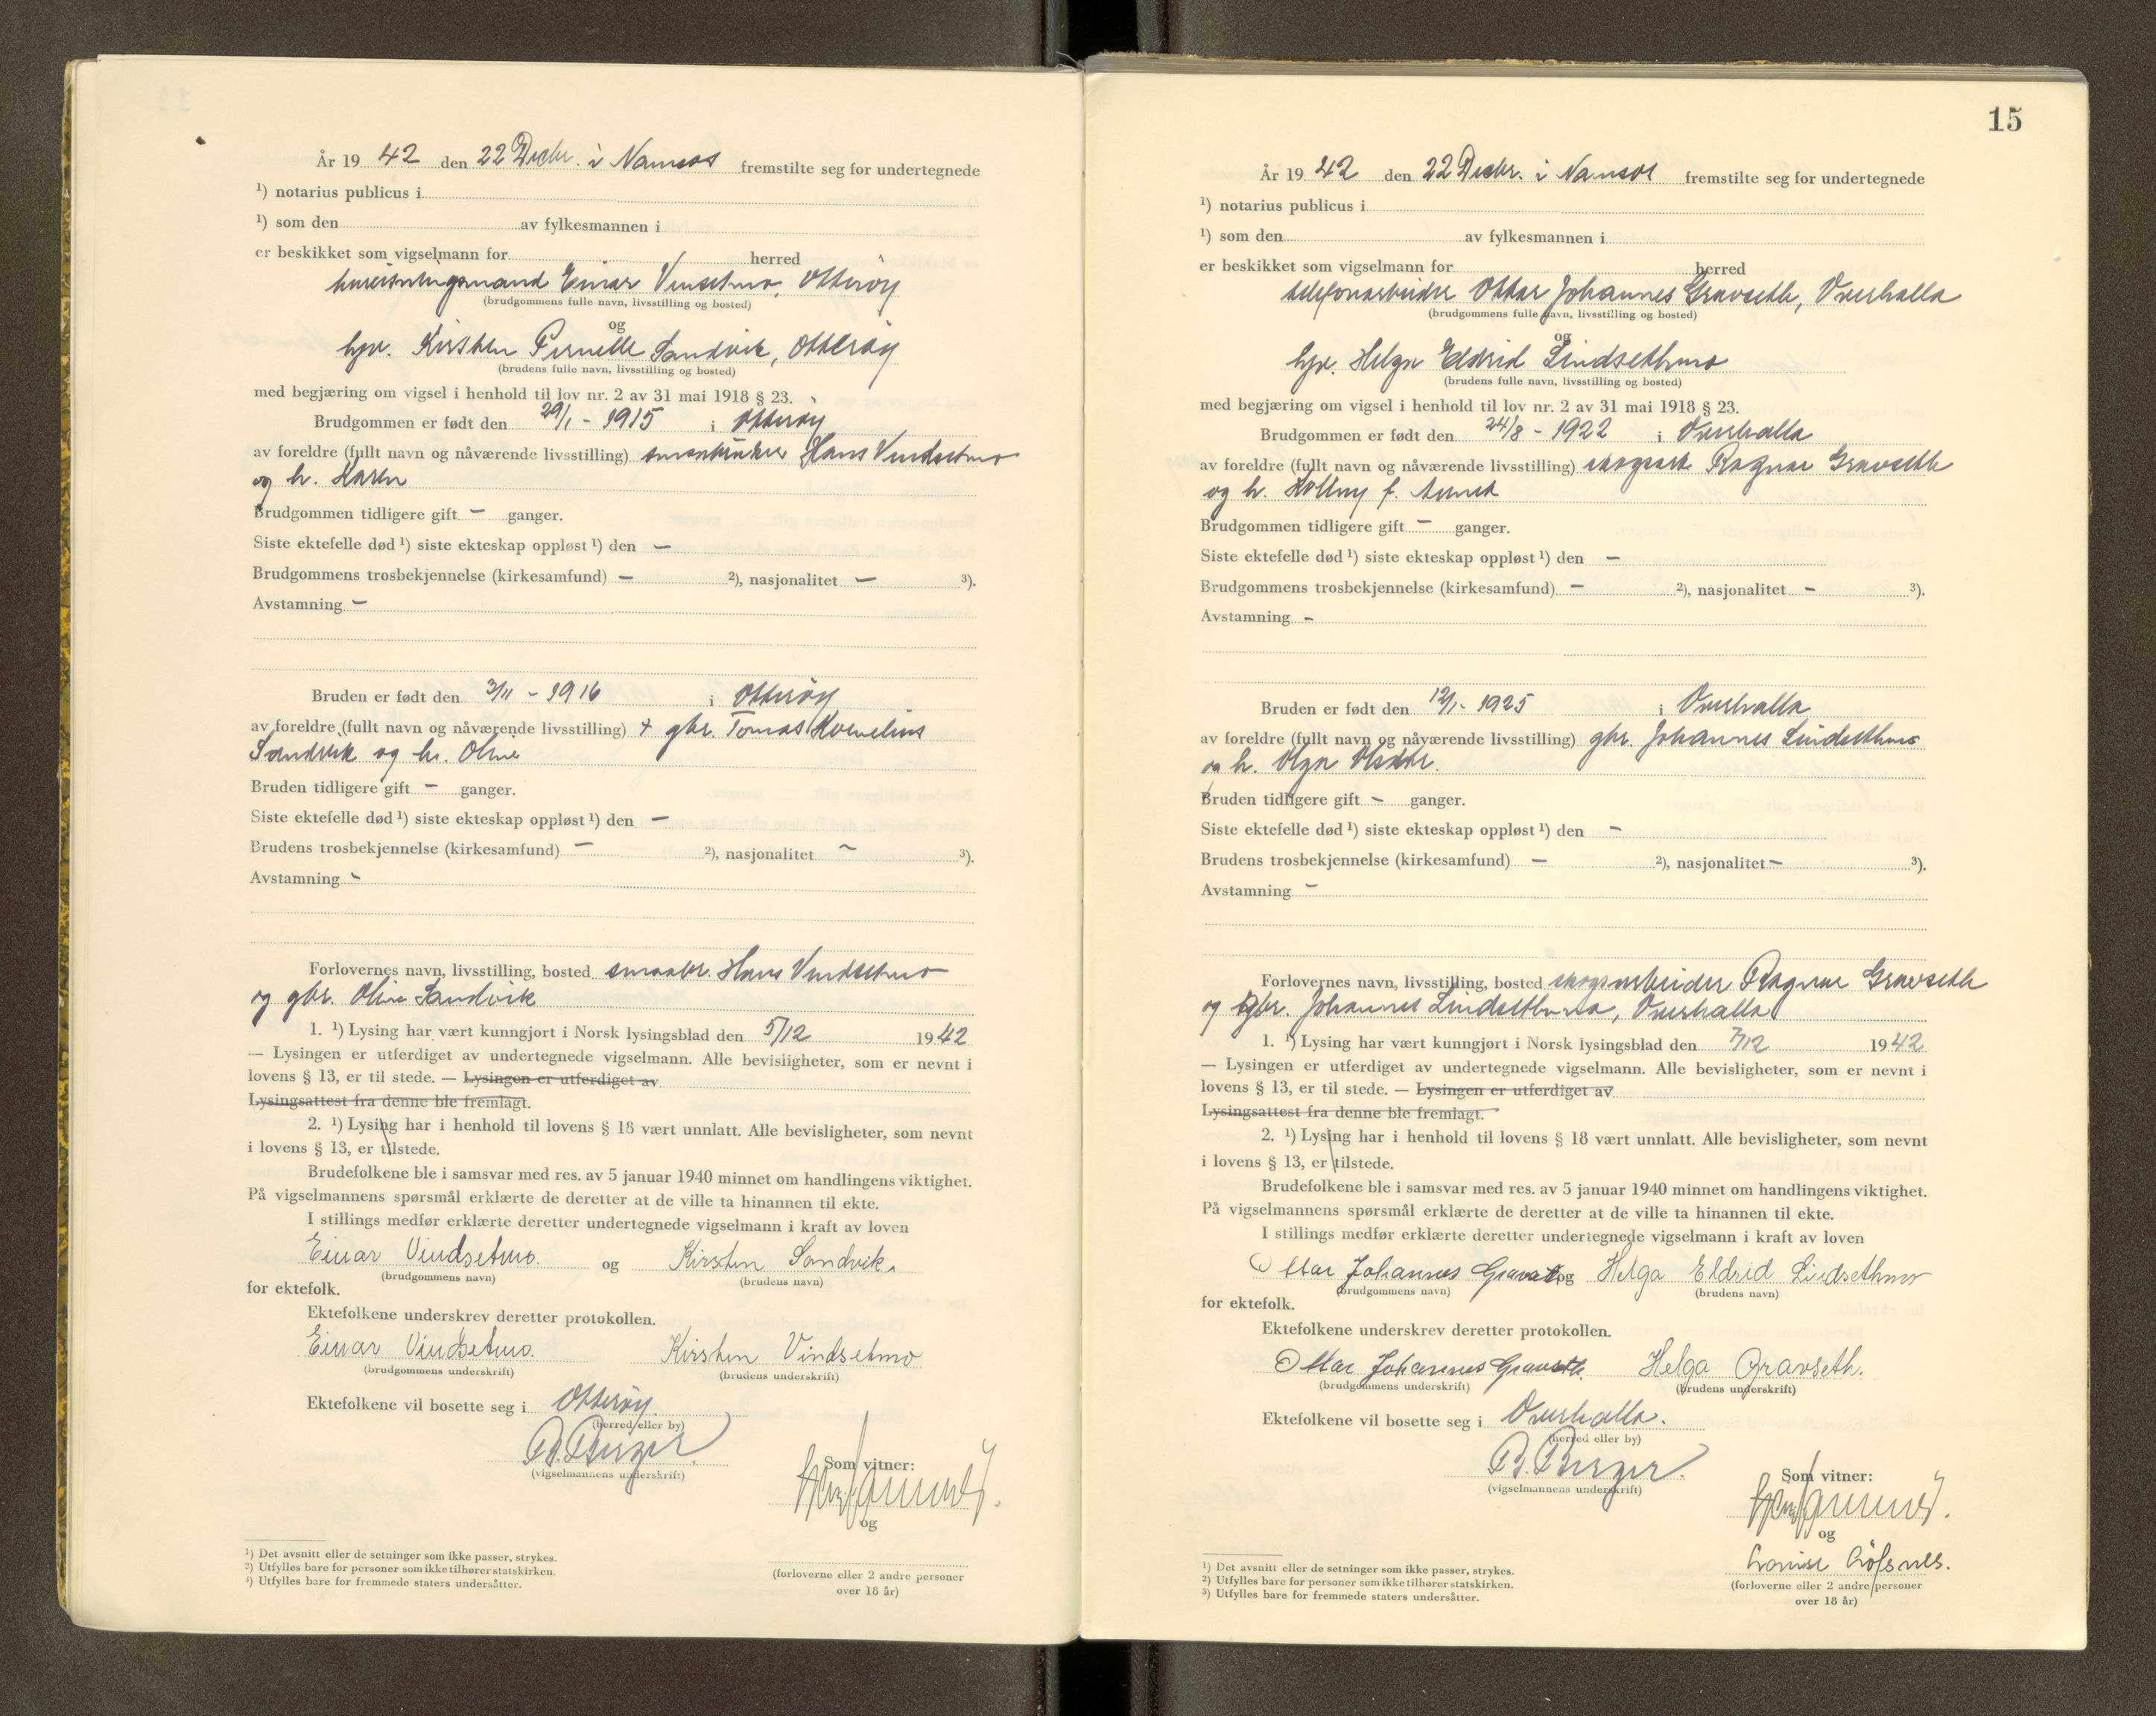 År 19 42 den 22 Decbr. i Namsos fremstilte seg for undertegnede
¹) notarius publicus i
¹) som den av fylkesmannen i
er beskikket som vigselmann for herred
Einar Vinsetmo, Otterøy
(brudgommens fulle navn, livsstilling og bosted)
og
hpr. Kirsten Pernelle Sandvik, Otterøy
(brudens fulle navn, livsstilling og bosted)
med begjæring om vigsel i henhold til lov nr. 2 av 31 mai 1918 § 23.
Brudgommen er født den 29/1 - 1915 i Otterøy
av foreldre (fullt navn og nåværende livsstilling) smaabruker Hans Vindsetmo
og h. Karen
Brudgommen tidligere gift - ganger.
Siste ektefelle død ¹) siste ekteskap oppløst ¹) den -
Brudgommens trosbekjennelse (kirkesamfund) - ²), nasjonalitet - ³).
Avstamning -
Bruden er født den 3/11 - 1916 i Otterøy
av foreldre (fullt navn og nåværende livsstilling) + gbr. Tomas Kornelius
Sandvik og h. Oline
Bruden tidligere gift - ganger.
Siste ektefelle død ¹) siste ekteskap oppløst ¹) den -
Brudens trosbekjennelse (kirkesamfund) - ²), nasjonalitet - ³).
Avstamning -
Forlovernes navn, livsstilling, bosted smaabr. Hans Vindsetmo
og gbr. Olive Sandvik
1. ¹) Lysing har vært kunngjort i Norsk lysingsblad den 5/12 1942
— Lysingen er utferdiget av undertegnede vigselmann. Alle bevisligheter, som er nevnt i
lovens § 13, er til stede. — Lysingen er utferdiget av
Lysingsattest fra denne ble fremlagt.
2. ¹) Lysing har i henhold til lovens § 18 vært unnlatt. Alle bevisligheter, som nevnt
i lovens § 13, er tilstede.
Brudefolkene ble i samsvar med res. av 5 januar 1940 minnet om handlingens viktighet.
På vigselmannens spørsmål erklærte de deretter at de ville ta hinannen til ekte.
I stillings medfør erklærte deretter undertegnede vigselmann i kraft av loven
Einar Vindsetmo. og Kirsten Sandvik.
(brudgommens navn) (brudens navn)
for ektefolk.
Ektefolkene underskrev deretter protokollen.
Einar Vindsetmo. Kirsten Vindsetmo
(brudgommens underskrift) (brudens underskrift)
Ektefolkene vil bosette seg i Otterøy.
(herred eller by)
B. Berger.
(vigselmannens underskrift)
Som vitner:
og
(forloverne eller 2 andre personer
over 18 år)
¹) Det avsnitt eller de setninger som ikke passer, strykes.
²) Utfylles bare for personer som ikke tilhører statskirken.
³) Utfylles bare for fremmede staters undersåtter.
15
År 19 42 den 22 Decbr. i Namsos fremstilte seg for undertegnede
¹) notarius publicus i
¹) som den av fylkesmannen i
er beskikket som vigselmann for herred
telefonarbeider Ottar Johannes Gravseth, Overhalla
(brudgommens fulle navn, livsstilling og bosted)
og
hpr. Helga Eldrid Lindsethmo
(brudens fulle navn, livsstilling og bosted)
med begjæring om vigsel i henhold til lov nr. 2 av 31 mai 1918 § 23.
Brudgommen er født den 24/8 - 1922 i Overhalla
av foreldre (fullt navn og nåværende livsstilling) skogsarb. Ragnar Gravseth
og h. f.
Brudgommen tidligere gift - ganger.
Siste ektefelle død ¹) siste ekteskap oppløst ¹) den -
Brudgommens trosbekjennelse (kirkesamfund) - ²), nasjonalitet - ³).
Avstamning -
Bruden er født den 12/1 - 1925 i Overhalla
av foreldre (fullt navn og nåværende livsstilling) gbr. Johannes Lindsethmo
og h. Olga
Bruden tidligere gift - ganger.
Siste ektefelle død ¹) siste ekteskap oppløst ¹) den -
Brudens trosbekjennelse (kirkesamfund) - ²), nasjonalitet - ³).
Avstamning -
Forlovernes navn, livsstilling, bosted skogsarbeider Ragnar Gravseth
og gbr. Johannes Lindsethmo, Overhalla
1. ¹) Lysing har vært kunngjort i Norsk lysingsblad den 7/12 1942
— Lysingen er utferdiget av undertegnede vigselmann. Alle bevisligheter, som er nevnt i
lovens § 13, er til stede. — Lysingen er utferdiget av
Lysingsattest fra denne ble fremlagt.
2. ¹) Lysing har i henhold til lovens § 18 vært unnlatt. Alle bevisligheter, som nevnt
i lovens § 13, er tilstede.
Brudefolkene ble i samsvar med res. av 5 januar 1940 minnet om handlingens viktighet.
På vigselmannens spørsmål erklærte de deretter at de ville ta hinannen til ekte.
I stillings medfør erklærte deretter undertegnede vigselmann i kraft av loven
Ottar Johannes Gravseth og Helga Eldrid Lindsethmo
(brudgommens navn) (brudens navn)
for ektefolk.
Ektefolkene underskrev deretter protokollen.
Ottar Johannes Gravseth. Helga Gravseth.
(brudgommens underskrift) (brudens underskrift)
Ektefolkene vil bosette seg i Overhalla.
(herred eller by)
B. Berger.
(vigselmannens underskrift)
Som vitner:
og
(forloverne eller 2 andre personer
over 18 år)
¹) Det avsnitt eller de setninger som ikke passer, strykes.
²) Utfylles bare for personer som ikke tilhører statskirken.
³) Utfylles bare for fremmede staters undersåtter.